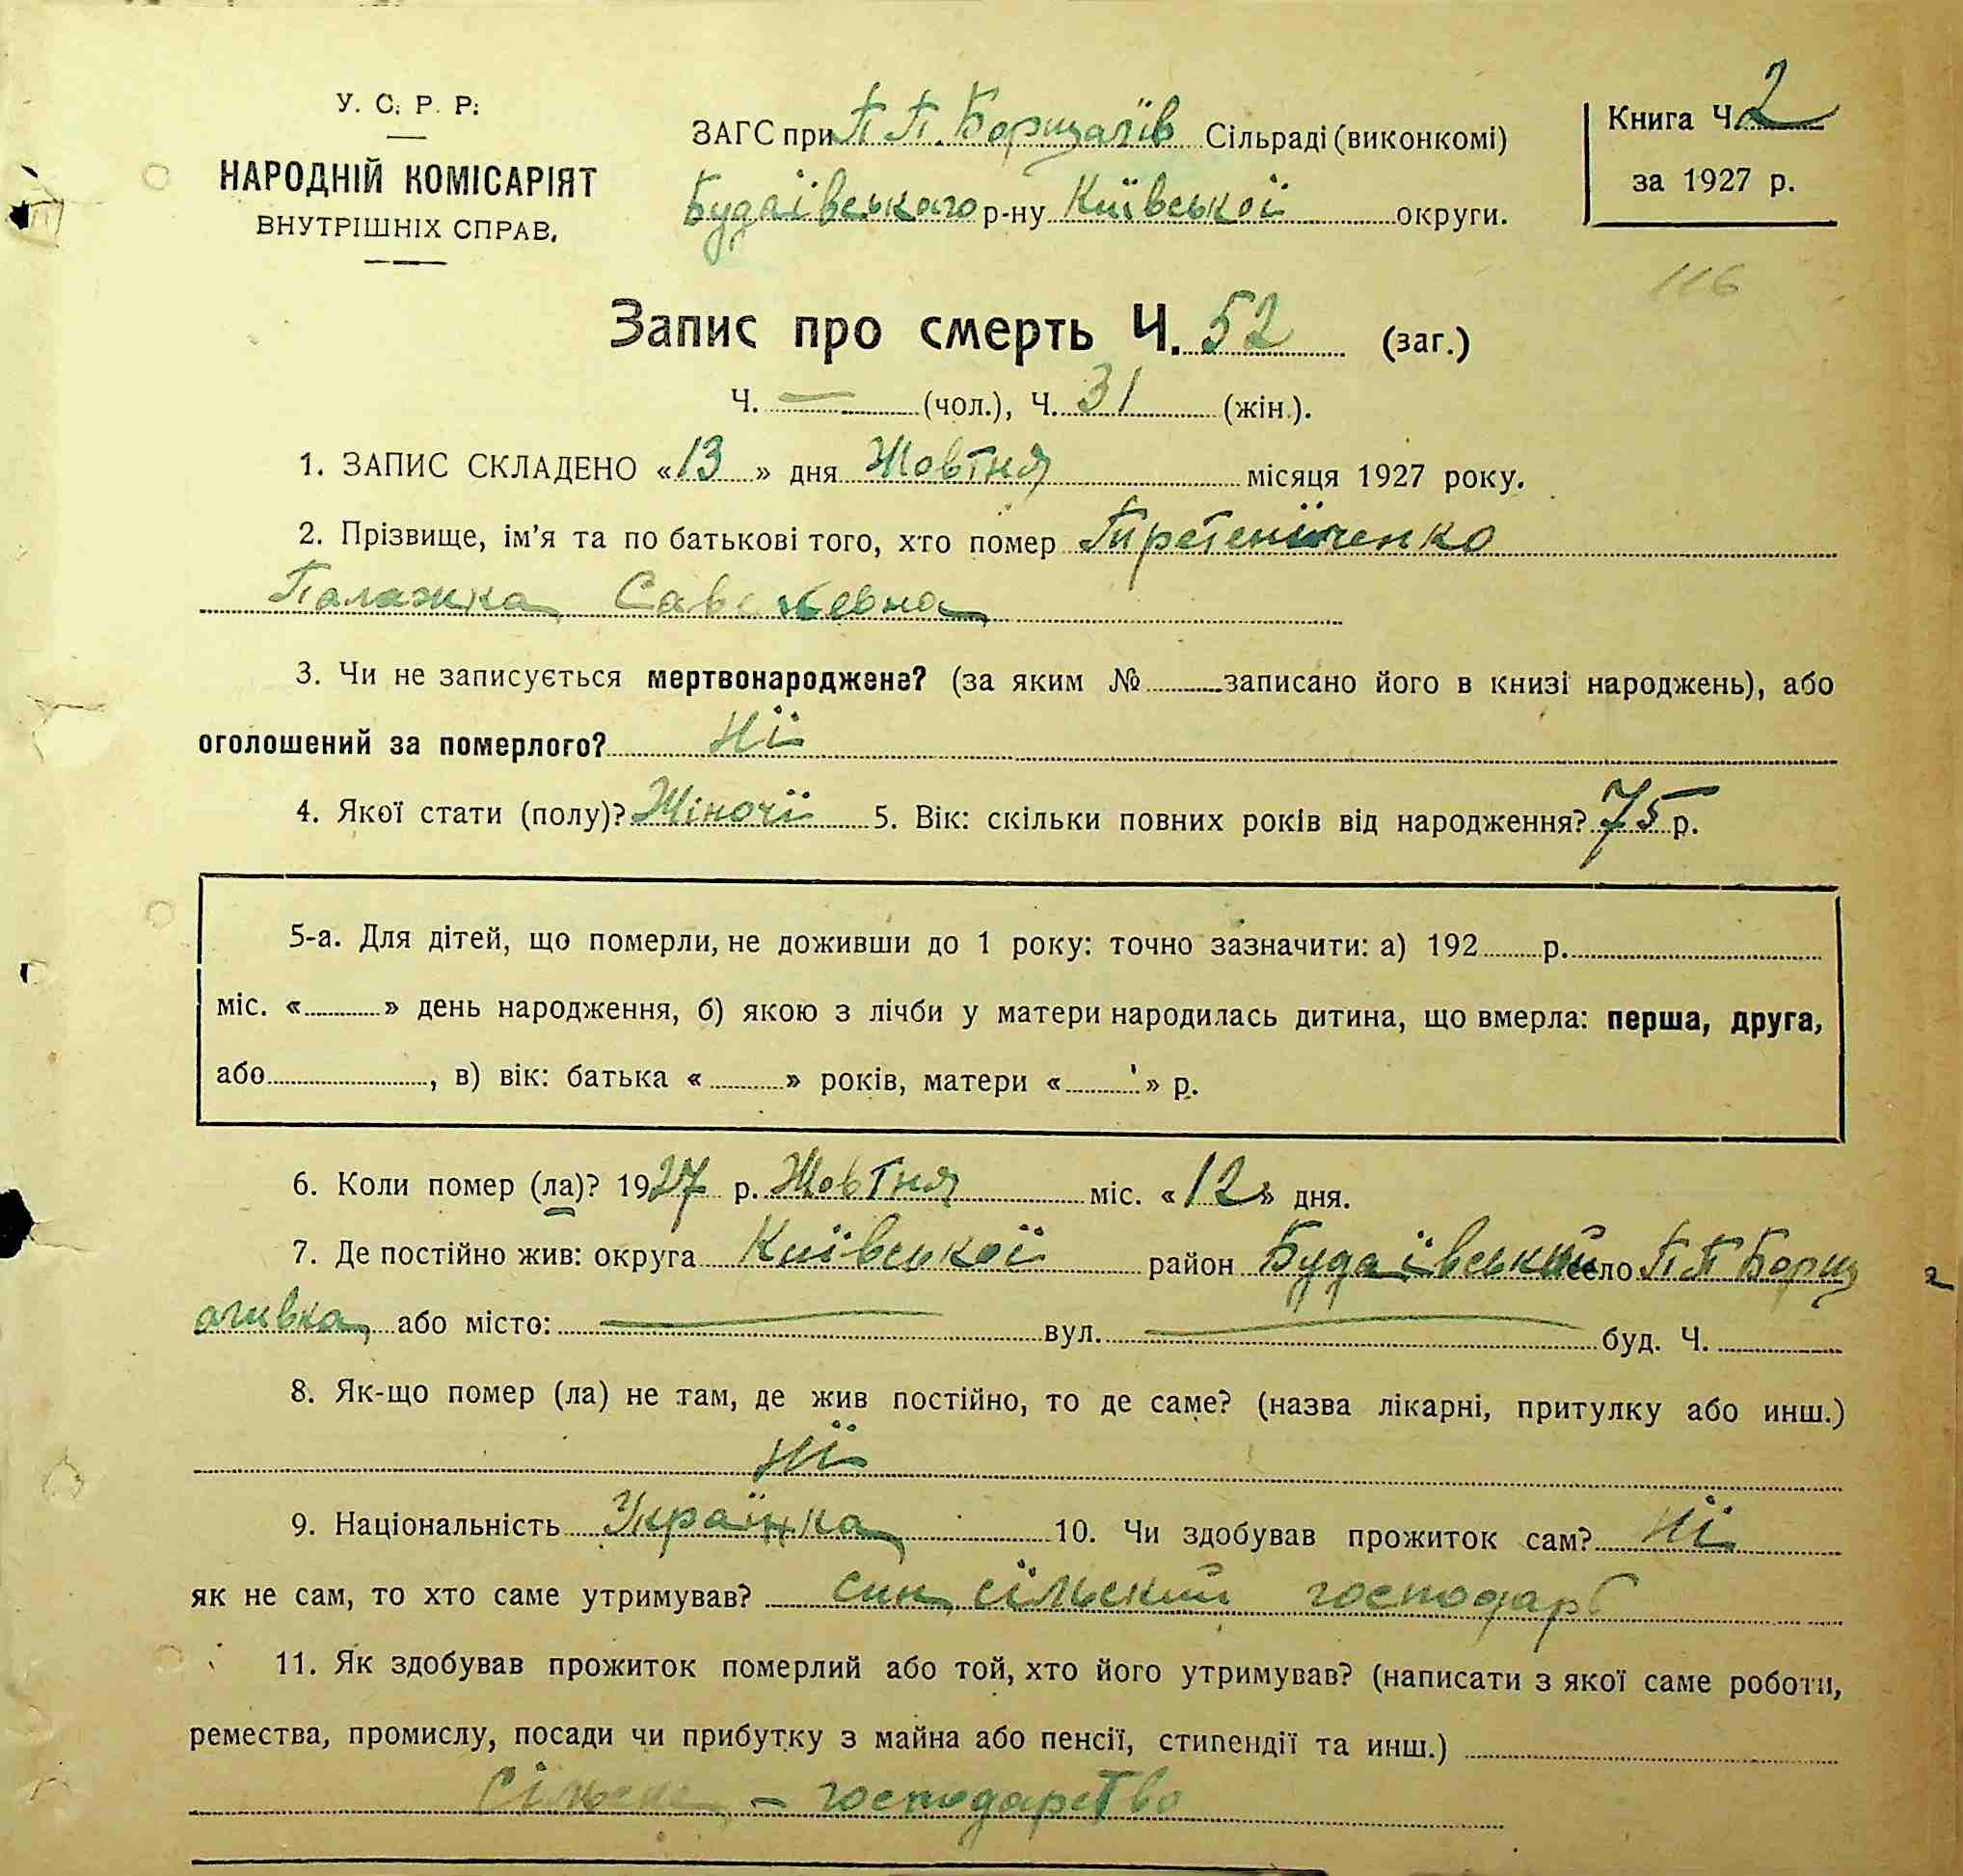 У. С. Р. Р.
НАРОДНІЙ КОМІСАРІЯТ
ВНУТРІШНІХ СПРАВ.
ЗАГС при П П. Борщагів Сільраді (виконкомі)
Будаївського р-ну Київської округи.
Книга Ч. 2
за 1927 р.
116
Запис про смерть Ч. 52 (заг.)
Ч. — (чол.), Ч. 31 (жін.).
1. ЗАПИС СКЛАДЕНО «13» дня Жовтня місяця 1927 року.
2. Прізвище, ім'я та по батькові того, хто помер
Палажка
3. Чи не записується мертвонароджене? (за яким № записано його в книзі народжень), або
оголошений за померлого? Ні
4. Якої стати (полу)? Жіночї 5. Вік: скільки повних років від народження? 75 р.
5-а. Для дітей, що померли, не доживши до 1 року: точно зазначити: а) 192 р.
міс. « » день народження, б) якою з лічби у матери народилась дитина, що вмерла: перша, друга,
або , в) вік: батька « » років, матери « » р.
6. Коли помер (ла)? 1927 р. Жовтня міс. «12» дня.
7. Де постійно жив: округа Київської район Будаївський село П П Борщ
агивка або місто: — вул. — буд. Ч.
8. Як-що помер (ла) не там, де жив постійно, то де саме? (назва лікарні, притулку або инш.)
Ні
9. Національність Українка 10. Чи здобував прожиток сам? Ні
як не сам, то хто саме утримував? син сільский господарь
11. Як здобував прожиток померлий або той, хто його утримував? (написати з якої саме роботи,
ремества, промислу, посади чи прибутку з майна або пенсії, стипендії та инш.)
Сільске - господарство